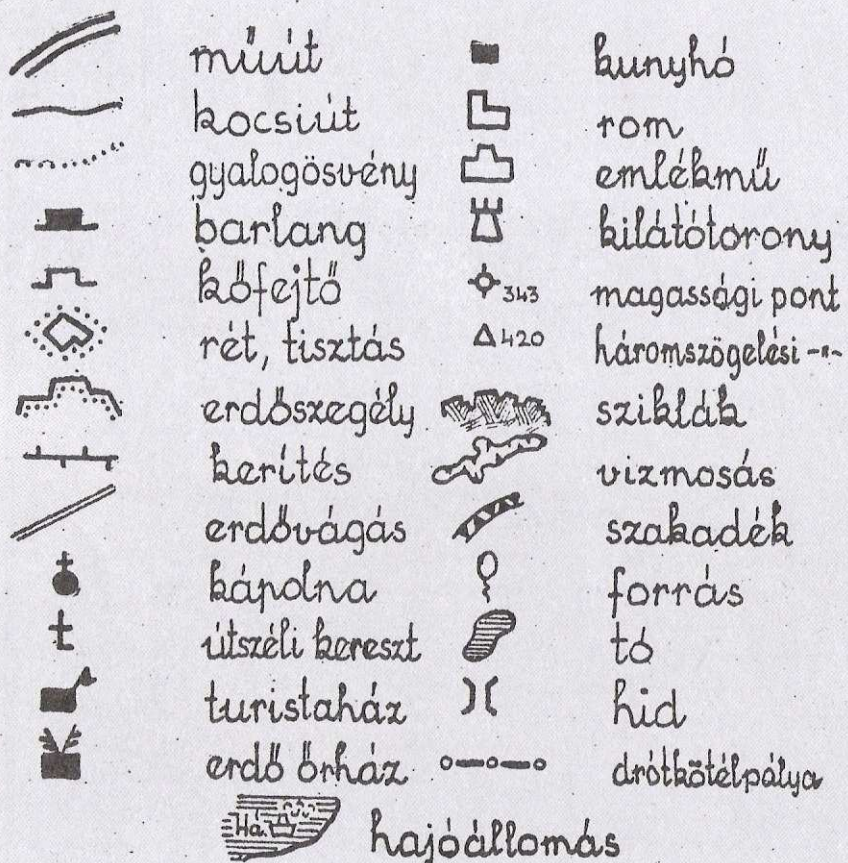 műút
kocsiút
gyalogösvény
barlang
kőfejtő
rét, tisztás
erdőszegély
kerítés
erdővágás
kápolna
útszéli kereszt
turistaház
erdő őrház
kunyhó
rom
emlékmű
kilátótorony
343 magassági pont
420 háromszögelési -"-
sziklák
vizmosás
szakadék
forrás
tó
hid
drótkötélpálya
Há. hajóállomás